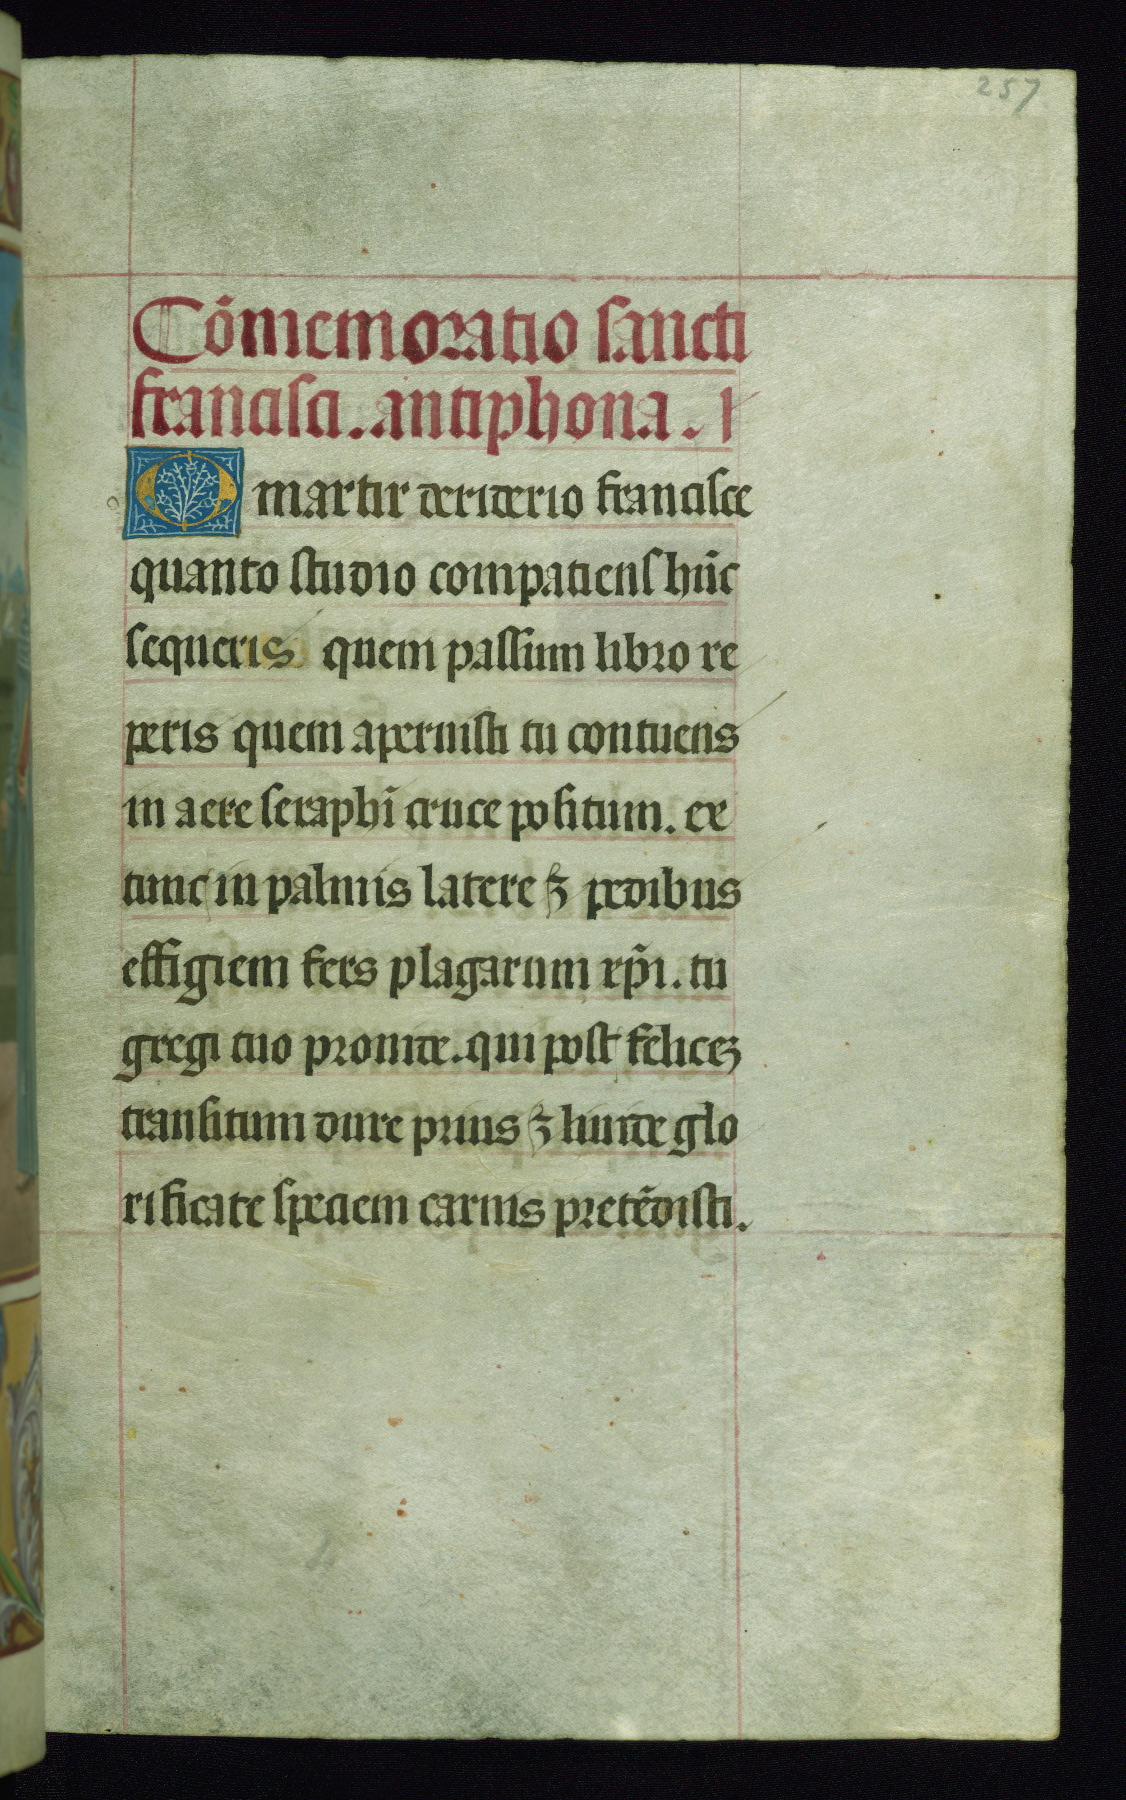 257
Cōmemoratio sancti
francisci. antiphona.
O martir deriderio francisce
quanto studio compatiens hūc
sequeris quem passum libro re
peris quem aperuisti tu contuens
in aere seraphī cruce positum. ex
tunc in palmis latere ⁊ pedibus
effigiem fers plagarum xp̄i. tu
gregi tuo prouide. qui post felicez
transitum dure prius ⁊ liuide glo
rificate speciem carnis pretēdisti.